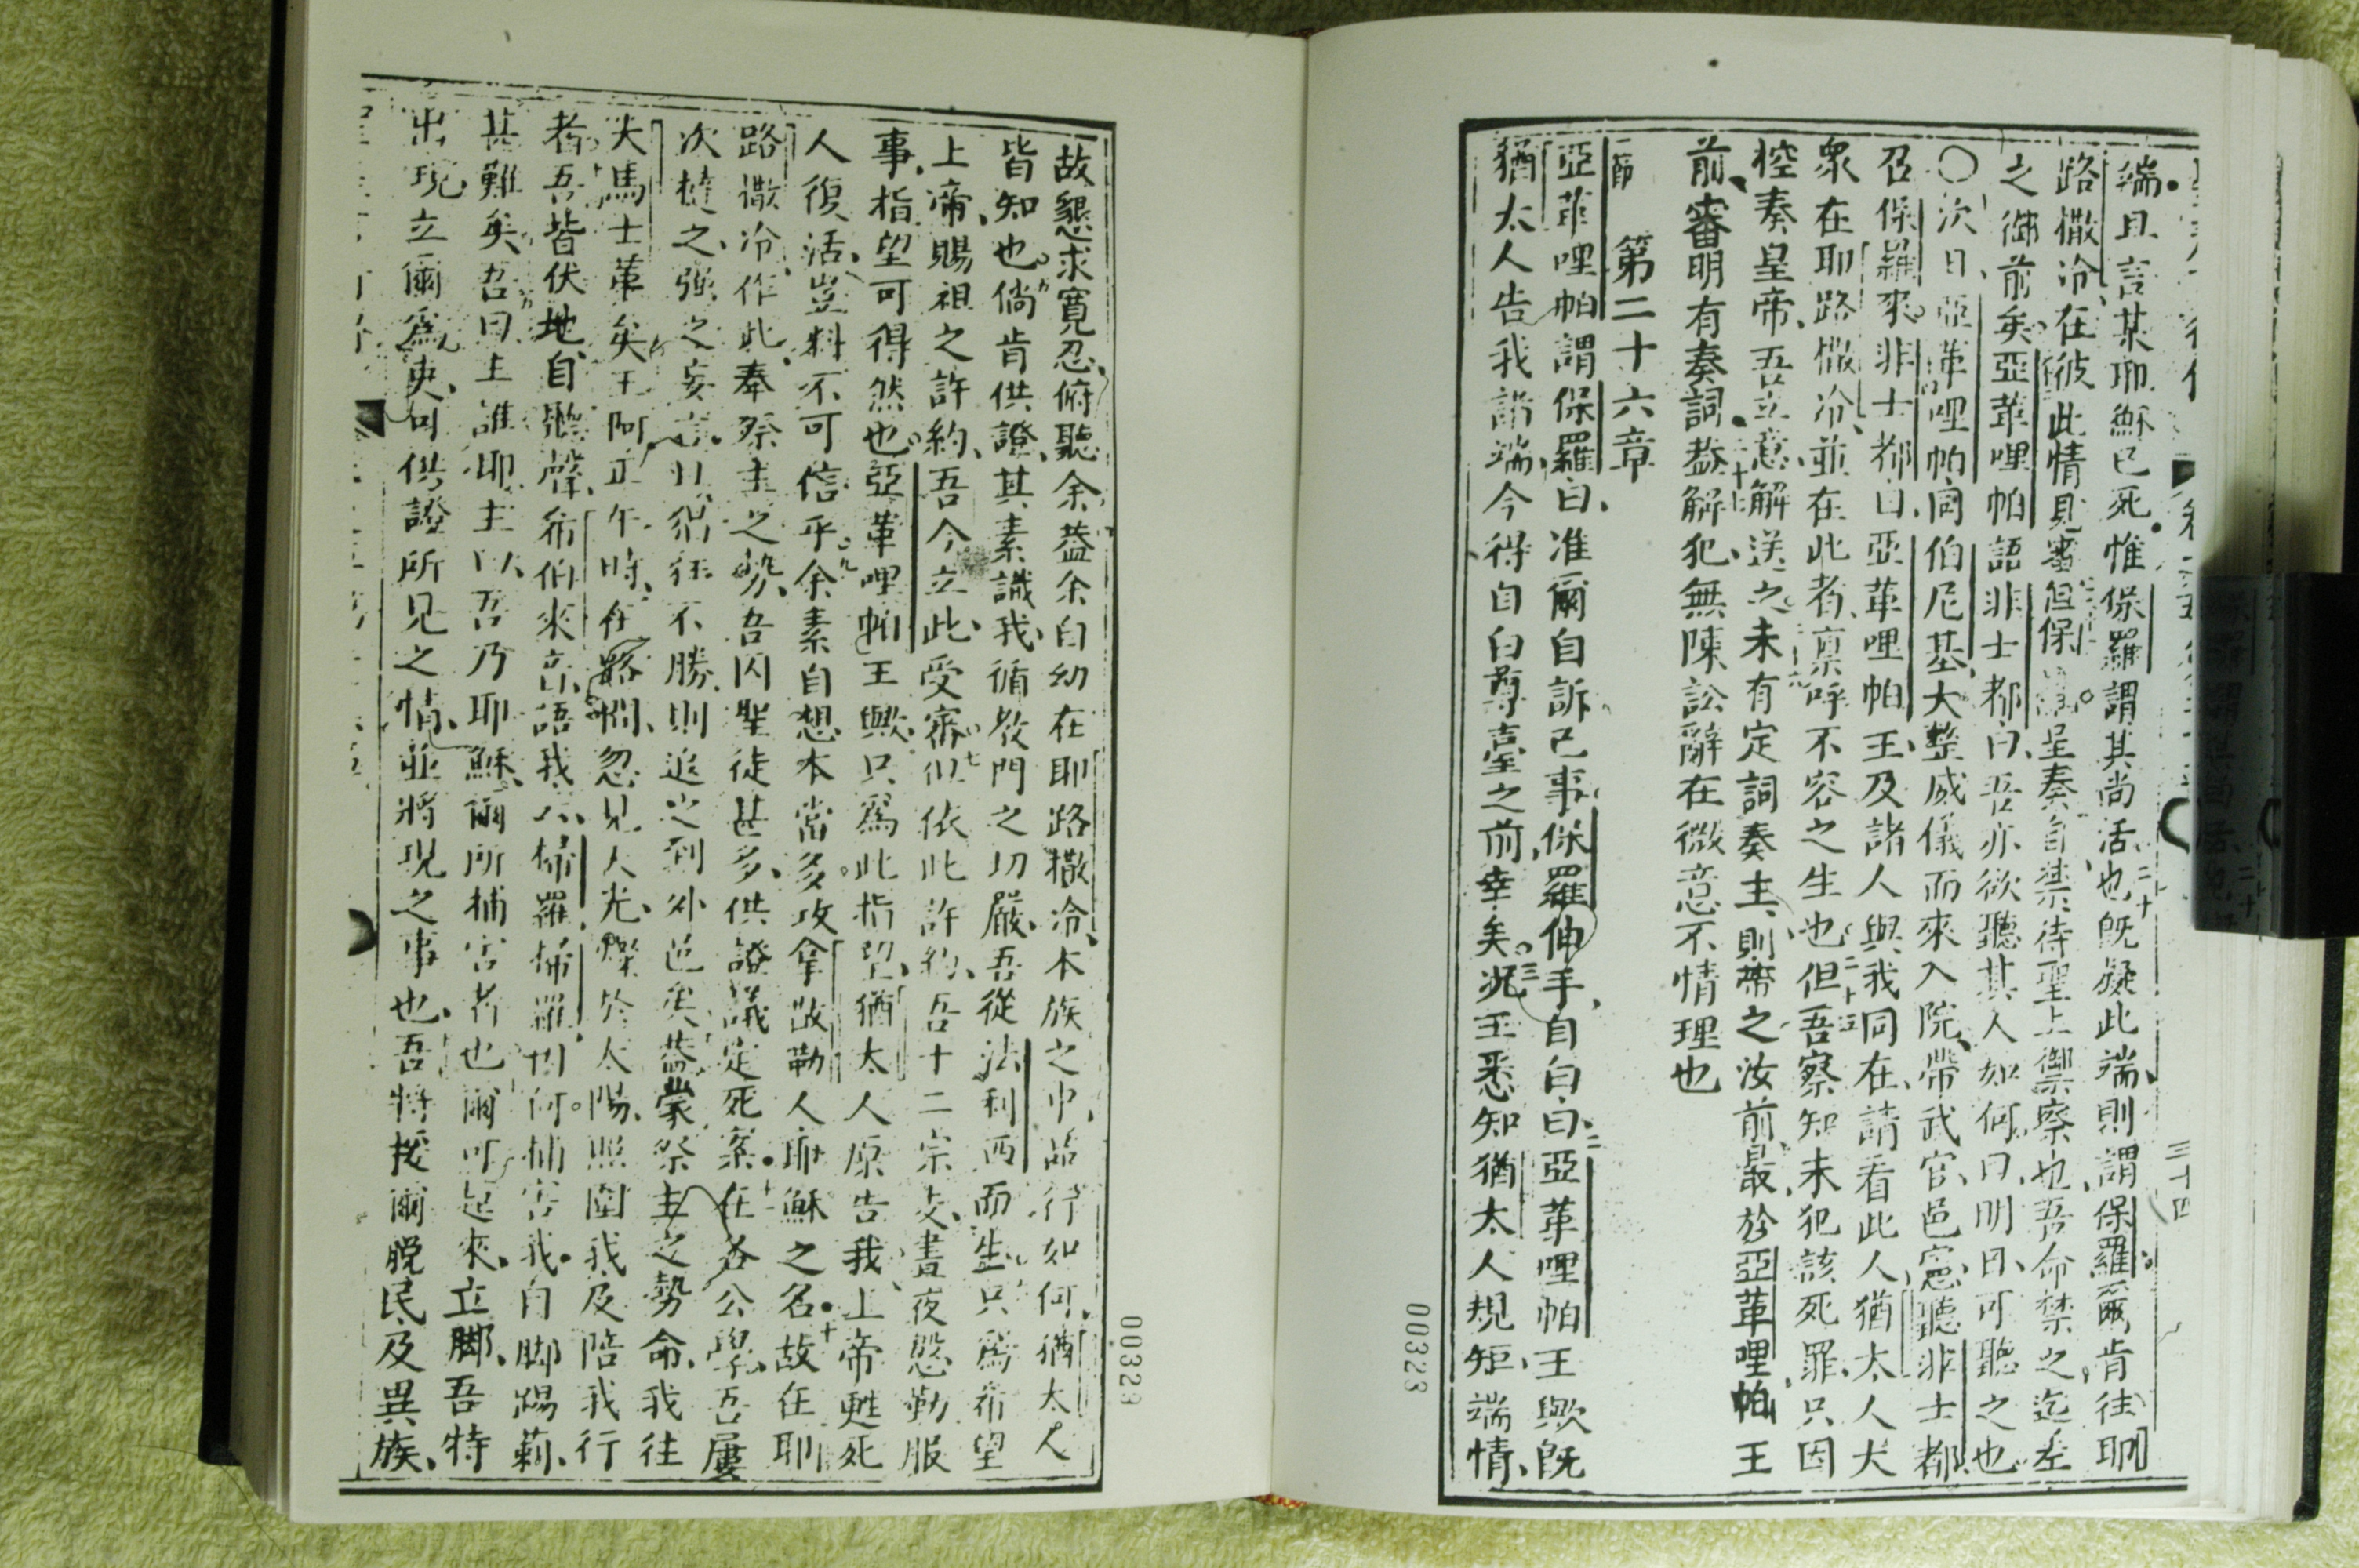 端且言某耶穌已死惟保羅謂其尚活也旣疑此端則謂保羅爾肯往耶
路撒冷在彼此情見審但保羅呈奏自禁待聖上御察也吾命禁之迄差
之御前矣亞革哩帕語非士都曰吾亦欲聽其人如何曰明日可聽之也
○次日亞革哩帕同伯尼基大整威儀而來入院帶武官邑憲聽非士都
召保羅來非士都曰亞革哩帕王及諸人與我同在請看此人猶太人大
衆在耶路撒冷並在此者稟呼不容之生也但吾察知未犯該死罪只因
控奏皇帝吾立意解送之未有定詞奏主則帶之汝前最於亞革哩帕王
前審明有奏詞蓋解犯無陳訟辭在微意不情理也
節 第二十六章
亞革哩帕謂保羅曰准爾自訴己事保羅伸手自白曰亞革哩帕王歟旣
猶太人告我諸端今得自白尊臺之前幸矣況王悉知猶太人規矩端情
00323
故懇求寬忍俯聽余蓋余自幼在耶路撒冷本族之中品行如何猶太人
皆知也倘肯供證其素識我循教門之切嚴吾從法利西而生只爲希望
上帝賜祖之許約吾今立此受審但依此許約吾十二宗支晝夜慇勤服
事指望可得然也亞革哩帕王歟只爲此指望猶太人原告我上帝甦死
人復活豈料不可信乎余素自想本當多攻拿撒勒人耶穌之名故在耶
路撒冷作此奉祭主之勢吾囚聖徒甚多供證議定死案在各公學吾屢
次撻之强之妄言且猖狂不勝則追之到外邑矣蓋蒙祭主之勢命我往
大馬士革矣王阿正午時在路間忽見人光爍於太陽照圍我及陪我行
者吾皆伏地自聽聲希伯來音語我云掃羅掃羅因何捕害我自脚踢莿
甚難矣吾曰主誰耶主以吾乃耶穌爾所捕害者也爾可起來立脚吾特
出現立爾爲吏句供證所見之情並將現之事也吾將援爾脫民及異族
00323